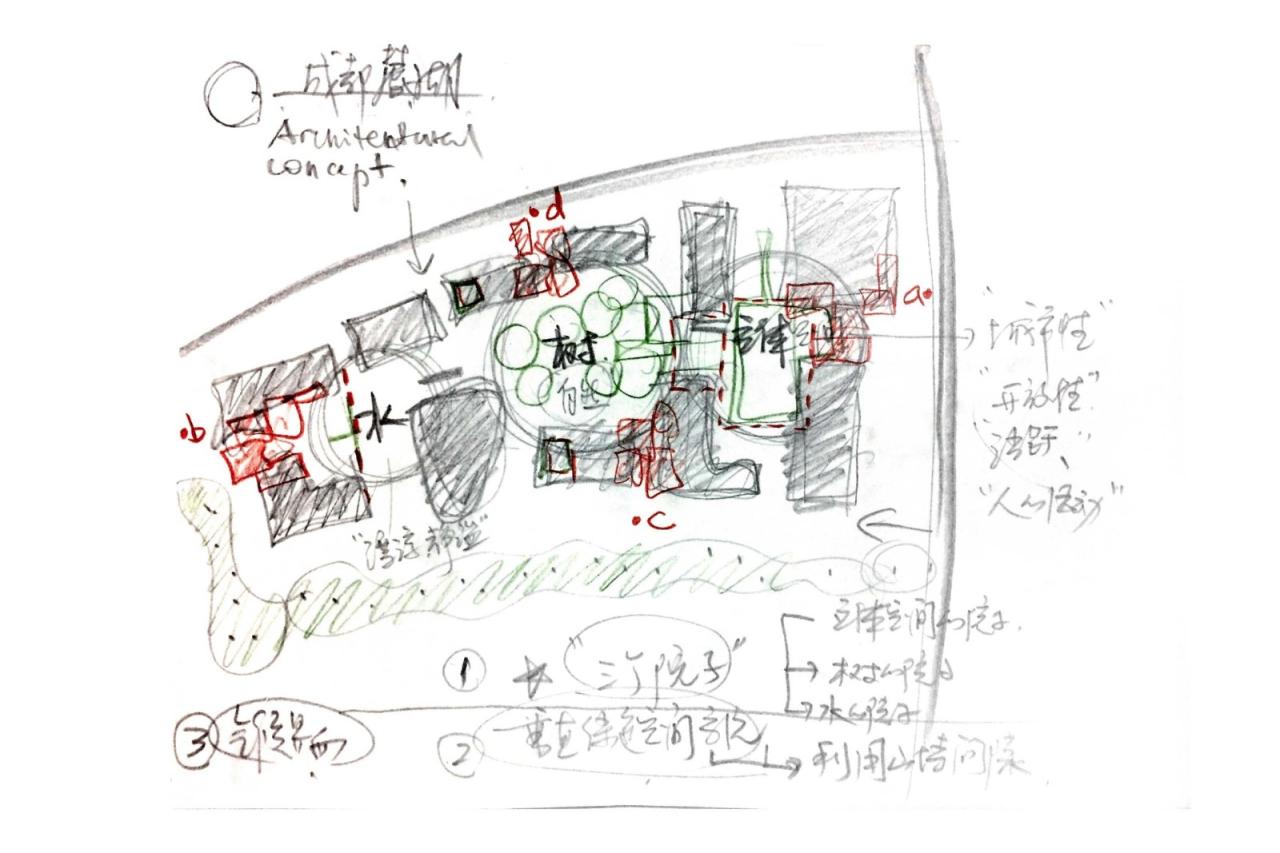 成都麓湖
Architectural
concept.
d
a
b
c
树
自然
主体空间
水
"城市性"
"开放性"
活跃
"人的活动"
① "三个院子"
立体空间的院子
树的院子
水的院子
② 垂直绿色空间系统
利用山墙间隙
③ 界面